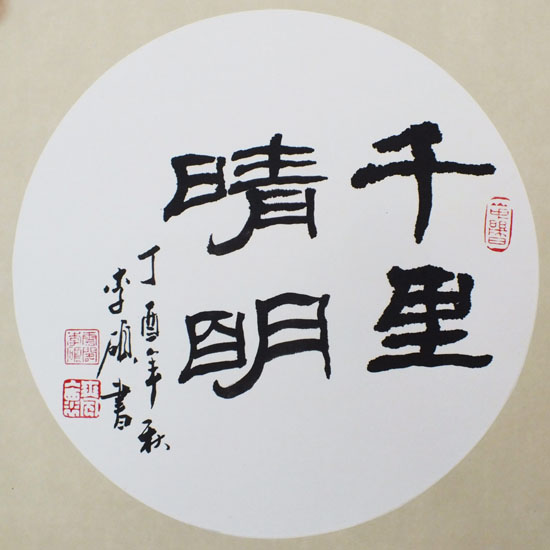 千里
晴明
丁酉年秋
李硕书